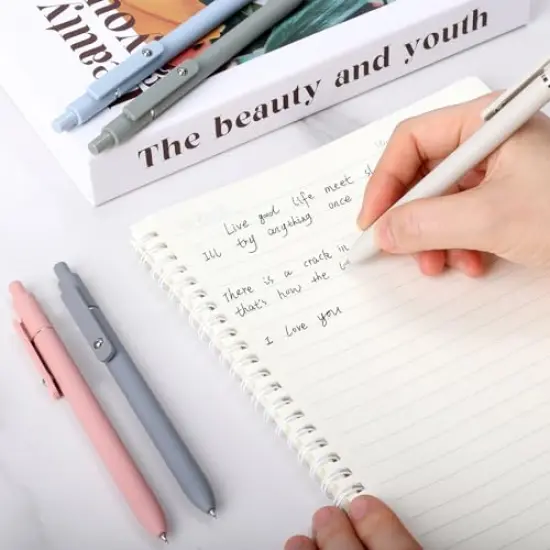 Beauty
your
beauty
The beauty and youth
Live good life meet sl
Ill try anything once
There is a crack in
that's how the li
I love you